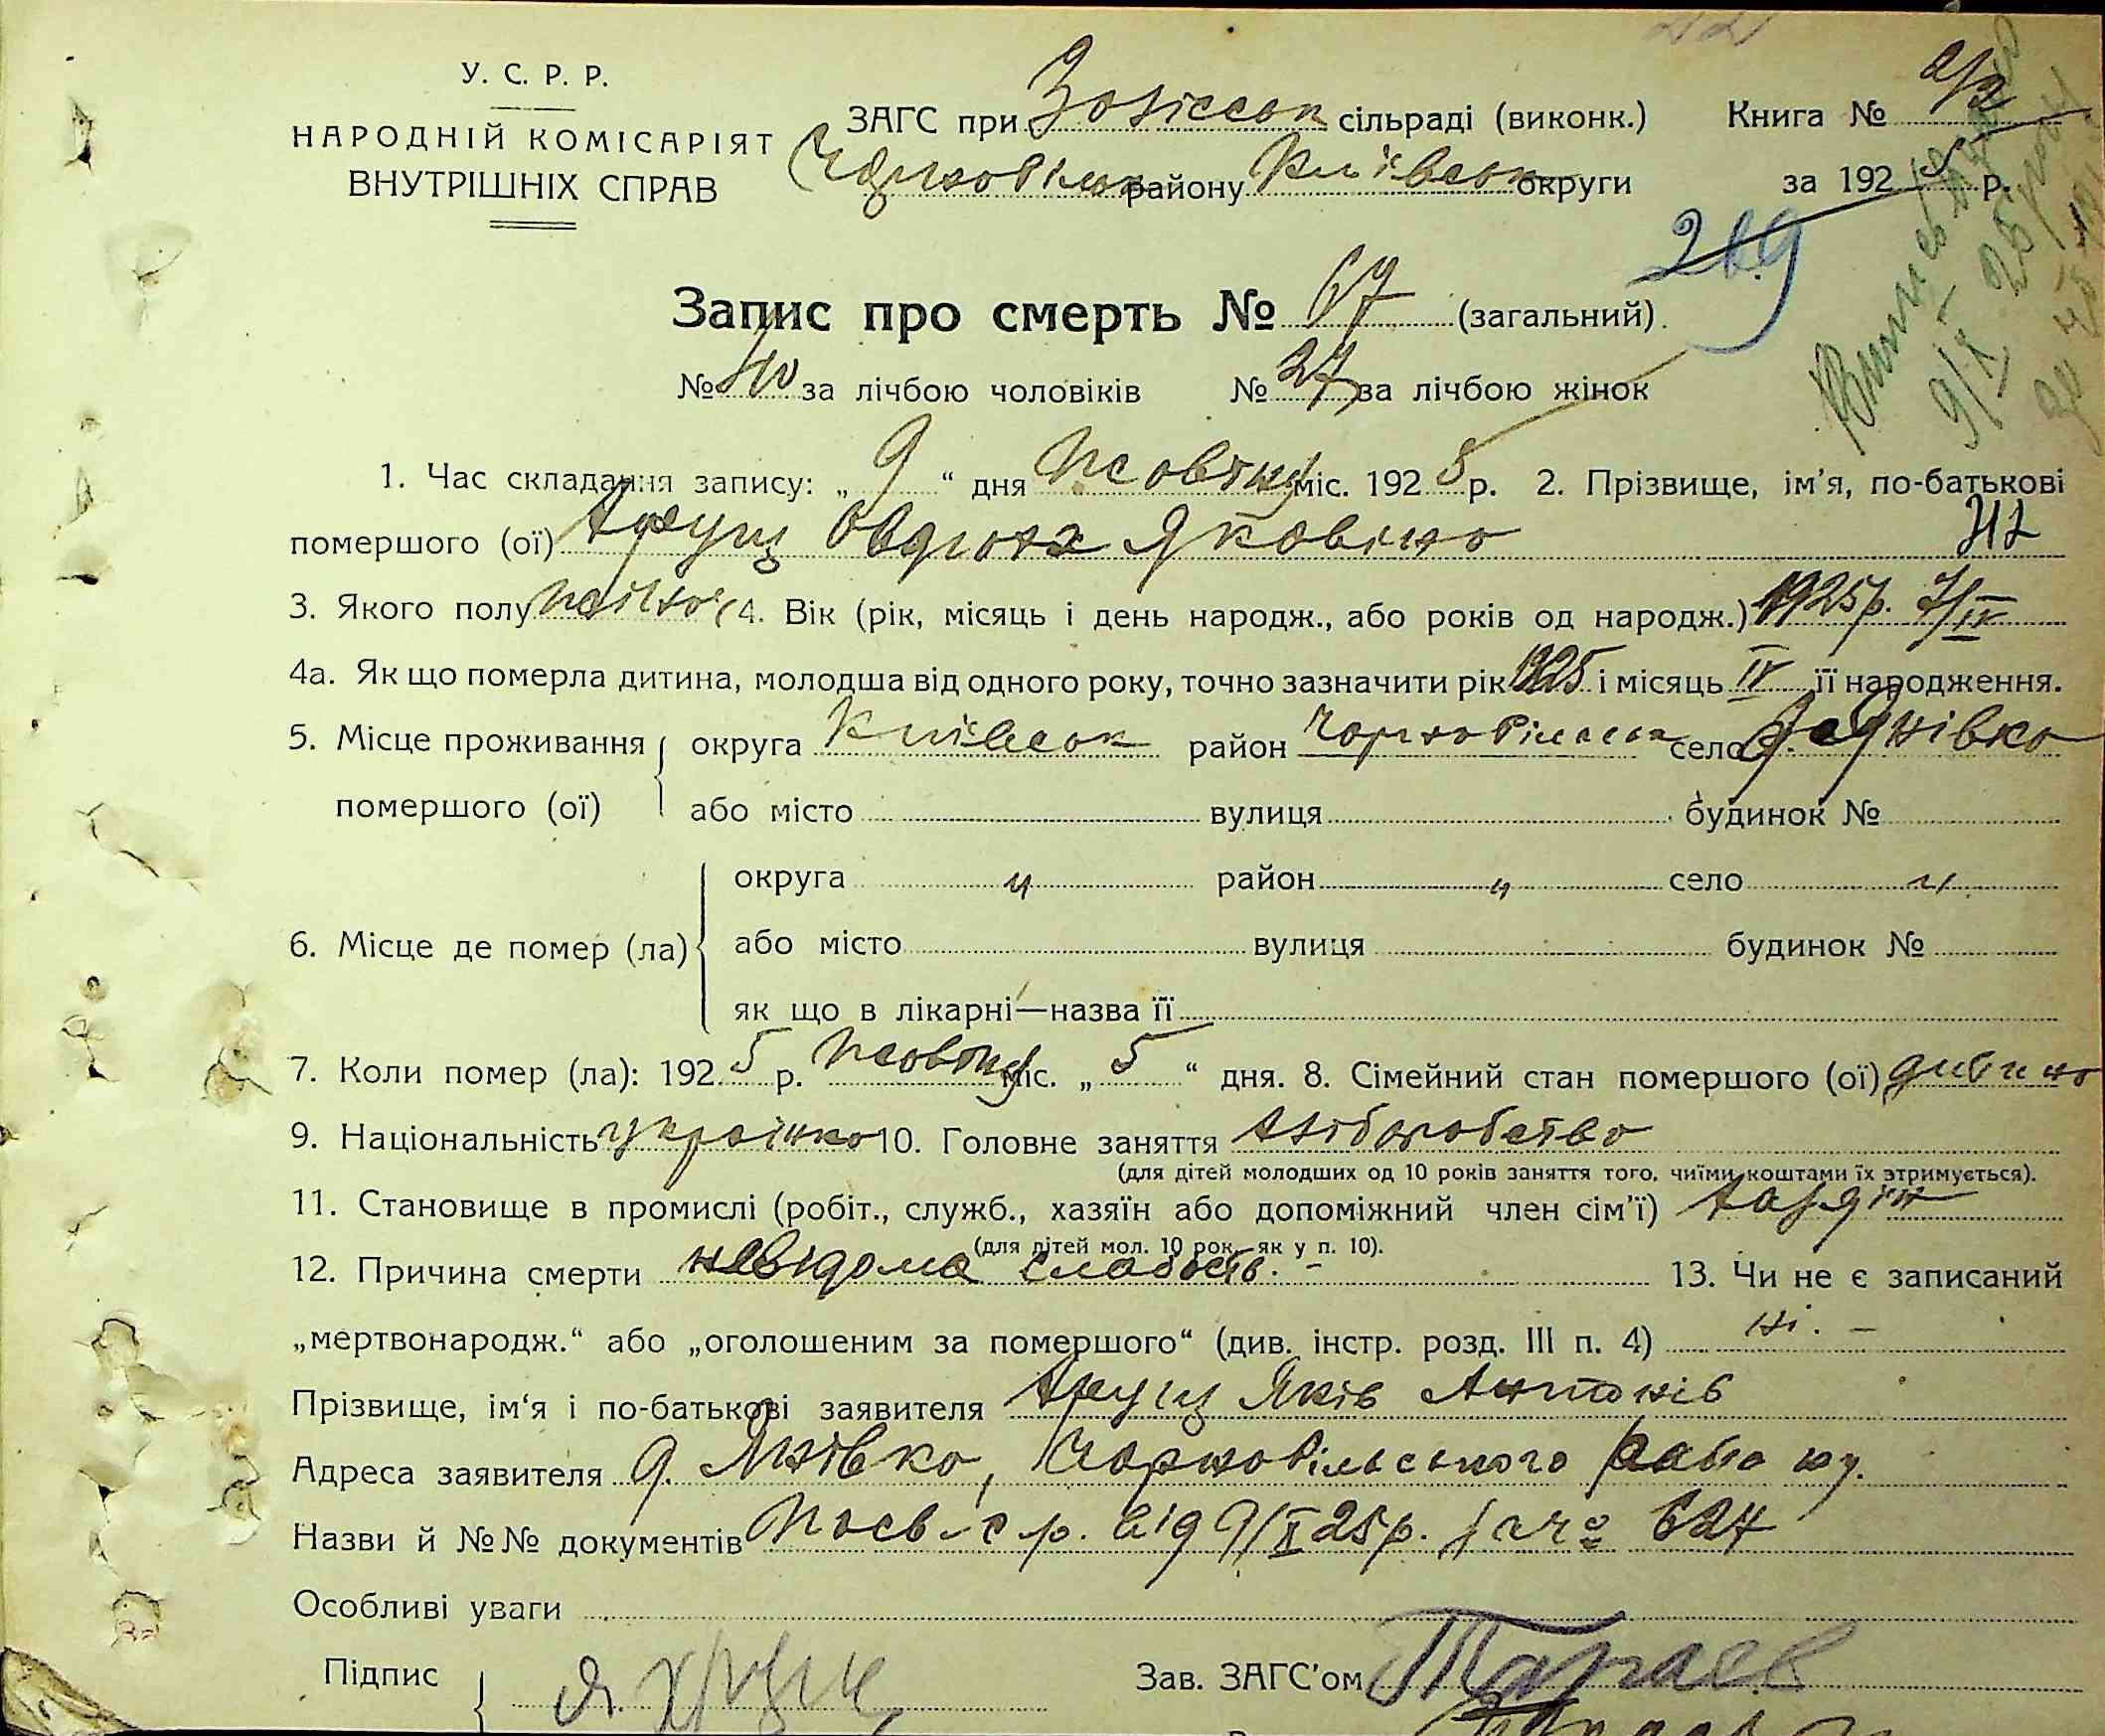 У. С. Р. Р.
НАРОДНІЙ КОМІСАРІЯТ
ВНУТРІШНІХ СПРАВ
ЗАГС при Залісськ сільраді (виконк.) Книга № 2/2
Чорнобільськ району Київськ округи за 192 5 р.
269
Запис про смерть № 67 (загальний)
№ 40 за лічбою чоловіків № 27 за лічбою жінок
1. Час складання запису: „ 9 “ дня Жовтня міс. 192 5 р. 2. Прізвище, ім'я, по-батькові
помершого (ої) Хрущ Овдюха Яковіна
3. Якого полу жіночі 4. Вік (рік, місяць і день народж., або років од народж.) 1925р. 7/IV
4а. Як що померла дитина, молодша від одного року, точно зазначити рік 1925 і місяць IV її народження.
5. Місце проживання округа Київськ район Чорнобільськ село
помершого (ої) або місто вулиця будинок №
округа " район " село "
6. Місце де помер (ла) або місто вулиця будинок №
як що в лікарні—назва її
7. Коли помер (ла): 192 5 р. Жовтня міс. „ 5 “ дня. 8. Сімейний стан помершого (ої) дитина
9. Національність українка 10. Головне заняття хліборобство
(для дітей молодших од 10 років заняття того, чиїми коштами їх зтримується).
11. Становище в промислі (робіт., служб., хазяїн або допоміжний член сім'ї) хазяїн
(для дітей мол. 10 рок. як у п. 10).
12. Причина смерти невідома слабость. - 13. Чи не є записаний
„мертвонародж.“ або „оголошеним за помершого“ (див. інстр. розд. III п. 4) ні. -
Прізвище, ім'я і по-батькові заявителя Хрущ Яків Антонів
Адреса заявителя Янівка, Чорнобільського району.
Назви й №№ документів Посв. с/р. від 9/X 25р. за ч. 624
Особливі уваги
Підпис Я Хрущ Зав. ЗАГС'ом